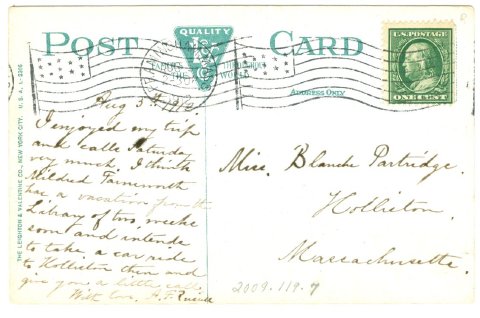 POST CARD
QUALITY
FAMOUS
THROUGHOUT
THE
WORLD
U.S. POSTAGE
ONE CENT
ADDRESS ONLY
THE LEIGHTON & VALENTINE CO., NEW YORK CITY. U.S.A.
Aug 5th 1912
I enjoyed my trip
and calls Saturday
very much. I think
Mildred Farnsworth
has a vacation from the
Library of two weeks
soon and intends
to take a car ride
to Holliston then and
give you a little call.
With love,
Miss. Blanche Partridge.
Holliston.
Massachusetts.
2009.119.7